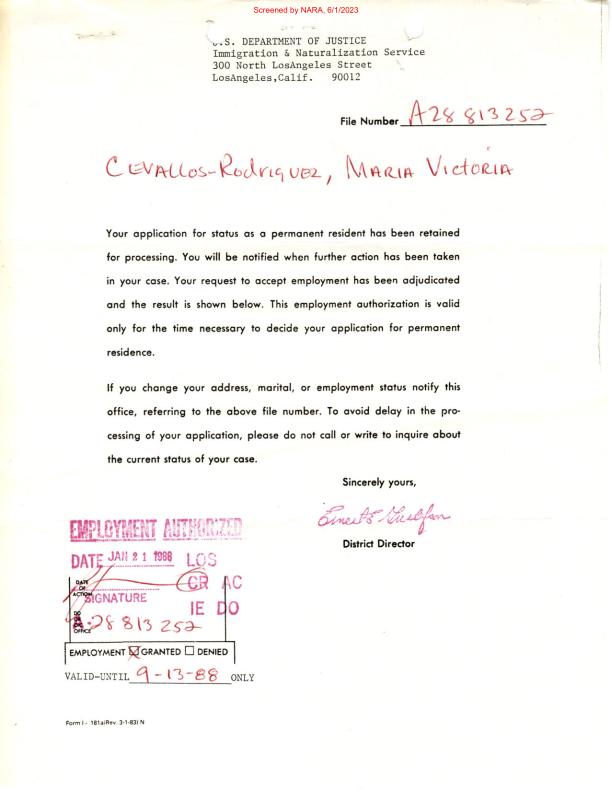 Screened by NARA, 6/1/2023
U.S. DEPARTMENT OF JUSTICE
Immigration & Naturalization Service
300 North LosAngeles Street
LosAngeles,Calif. 90012
File Number A28 813 252
CEVALLOS-RODRIQUEZ, MARIA VICTORIA
Your application for status as a permanent resident has been retained
for processing. You will be notified when further action has been taken
in your case. Your request to accept employment has been adjudicated
and the result is shown below. This employment authorization is valid
only for the time necessary to decide your application for permanent
residence.
If you change your address, marital, or employment status notify this
office, referring to the above file number. To avoid delay in the pro-
cessing of your application, please do not call or write to inquire about
the current status of your case.
Sincerely yours,
District Director
EMPLOYMENT AUTHORIZED
DATE JAN 21 1988 LOS
DATE
OF
ACTION
CR AC
SIGNATURE
IE DO
DO
OR
OFFICE
A-28 813 252
EMPLOYMENT ☒ GRANTED ☐ DENIED
VALID-UNTIL 9-13-88 ONLY
Form I-.181a(Rev. 3-1-83) N